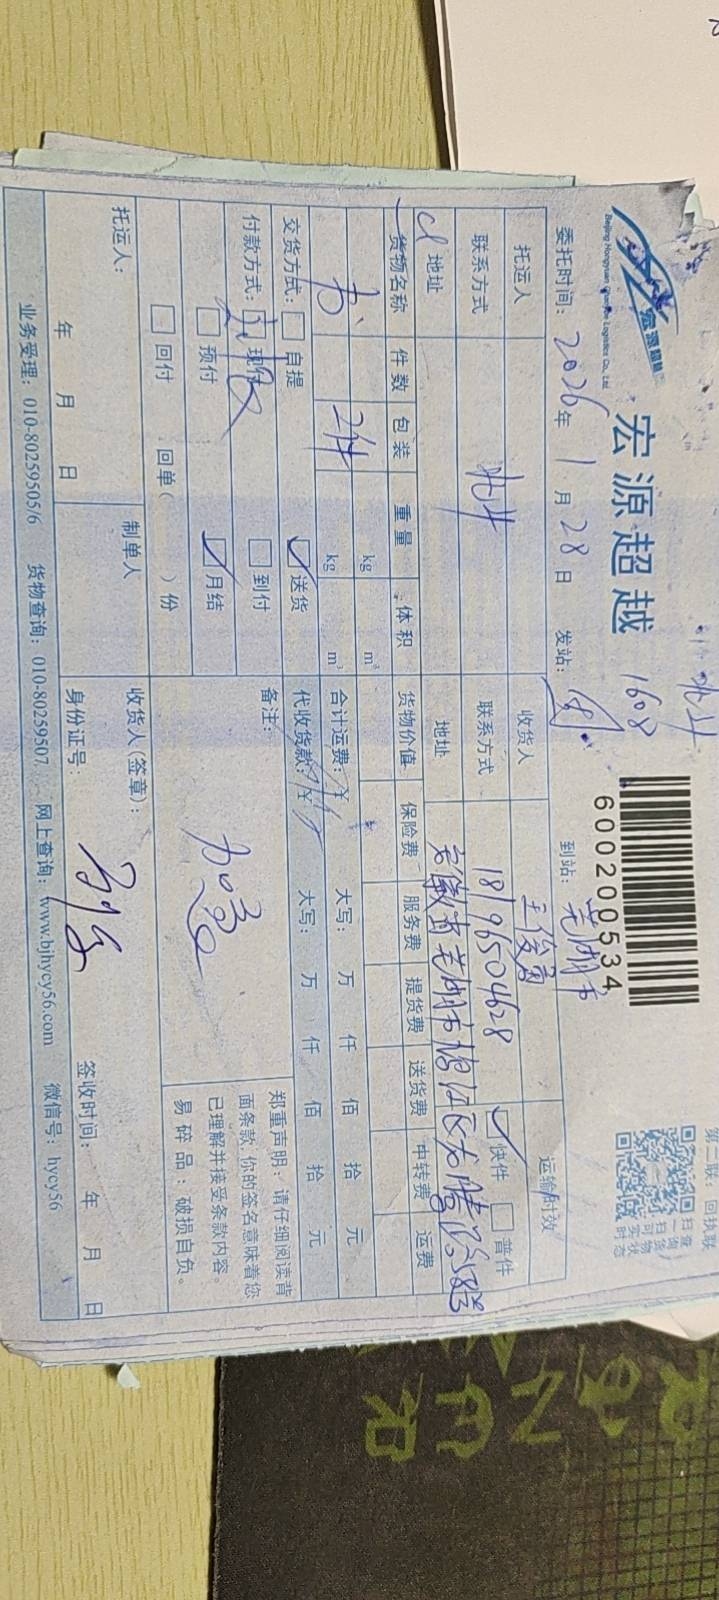 宏源超越
宏源超越
Beijing Hongyuan Chaoyue Logistics Co., Ltd
1608
600200534
第二联：回执联
扫一扫
查询货物
可实时状态
委托时间：2026年1月28日
发站：
到站：芜湖市
托运人
收货人
王俊勇
运输时效
联系方式
北斗
联系方式
18196504628
快件
普件
地址
地址
安徽省芜湖市鸠江区
货物名称
件数
包装
重量
体积
货物价值
保险费
服务费
提货费
送货费
中转费
运费
书
2件
kg
m³
kg
m³
合计运费：¥
大写：
万
仟
佰
拾
元
交货方式：
自提
送货
代收货款：¥
大写：
万
仟
佰
拾
元
付款方式：
现付
到付
预付
月结
回付
回单（
）份
备注：
加急
郑重声明：请仔细阅读背
面条款，你的签名意味着您
已理解并接受条款内容。
易碎品：破损自负。
托运人：
年
月
日
制单人
收货人(签章)：
身份证号：
签收时间：
年
月
日
业务受理：010-80259505/6
货物查询：010-80259507
网上查询：www.bjhycy56.com
微信号：hycy56